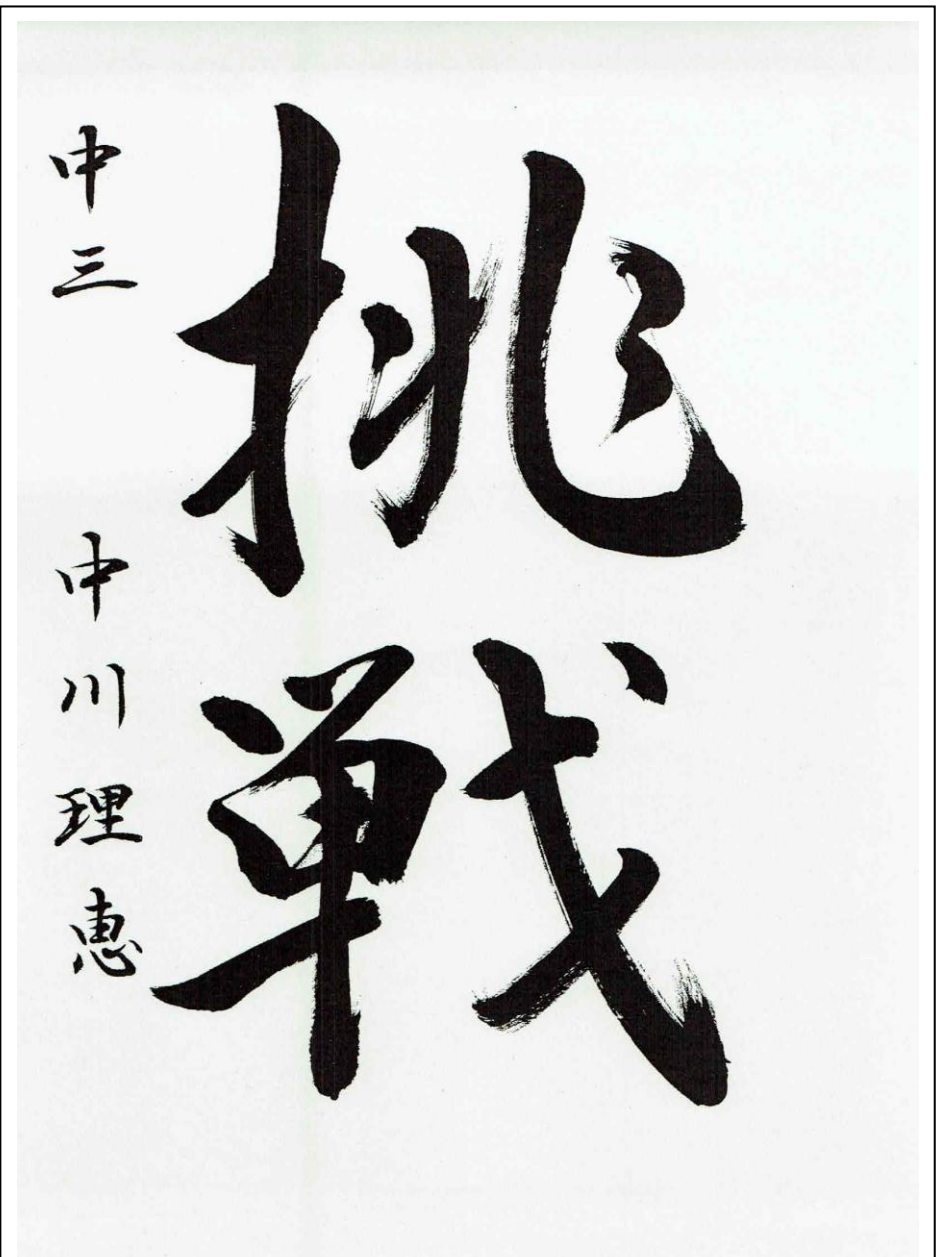 挑戦
中三 中川理恵